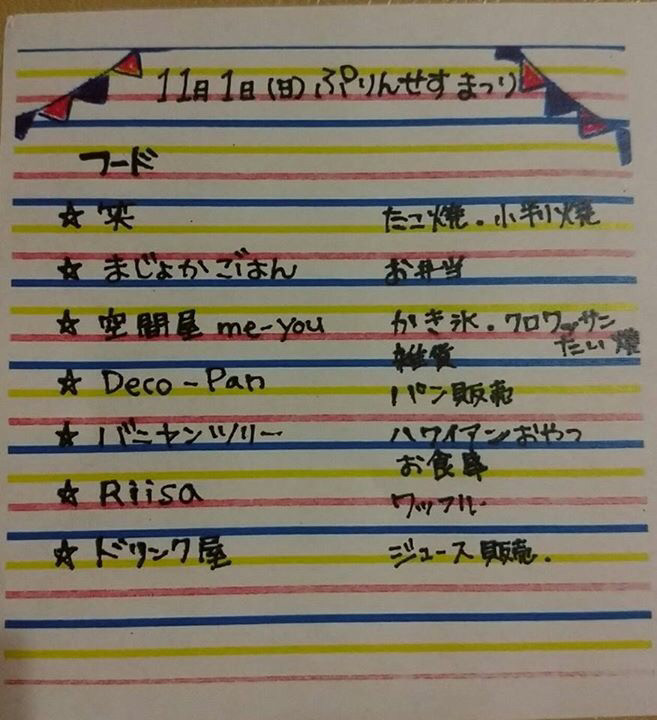 11月1日(日)ぷりんせすまつり
フード
☆ 笑 たこ焼・小判焼
☆ まじょかごはん お弁当
☆ 空間屋 me-you かき氷・クロワッサン
たい焼
雑貨
☆ Deco-Pan パン販売
☆ バニヤンツリー ハワイアンおやつ
お食事
☆ Riisa ワッフル
☆ ドリンク屋 ジュース販売.